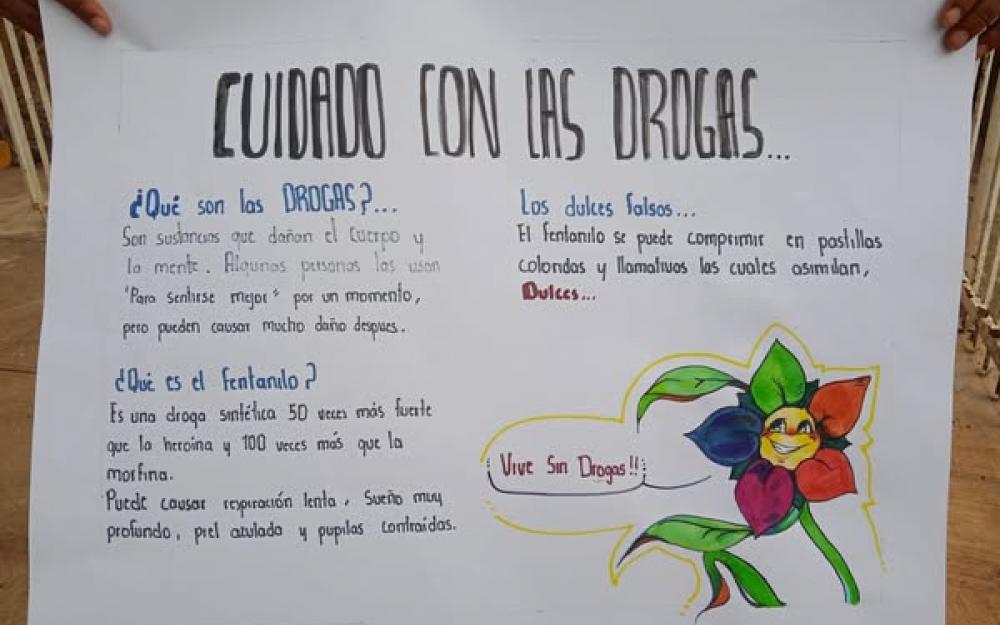 CUIDADO CON LAS DROGAS...
¿Qué son las DROGAS?...
Son sustancias que dañan el Cuerpo y
la mente. Algunas personas las usan
"Para sentirse mejor" por un momento,
pero pueden causar mucho daño despues.
¿Qué es el fentanilo?
Es una droga sintética 50 veces más fuerte
que la heroína y 100 veces más que la
morfina.
Puede causar respiración lenta, Sueño muy
profundo, piel azulada y pupilas contraídas.
Los dulces falsos...
El fentanilo se puede comprimir en pastillas
coloridas y llamativas las cuales asimilan,
Dulces...
Vive Sin Drogas!!